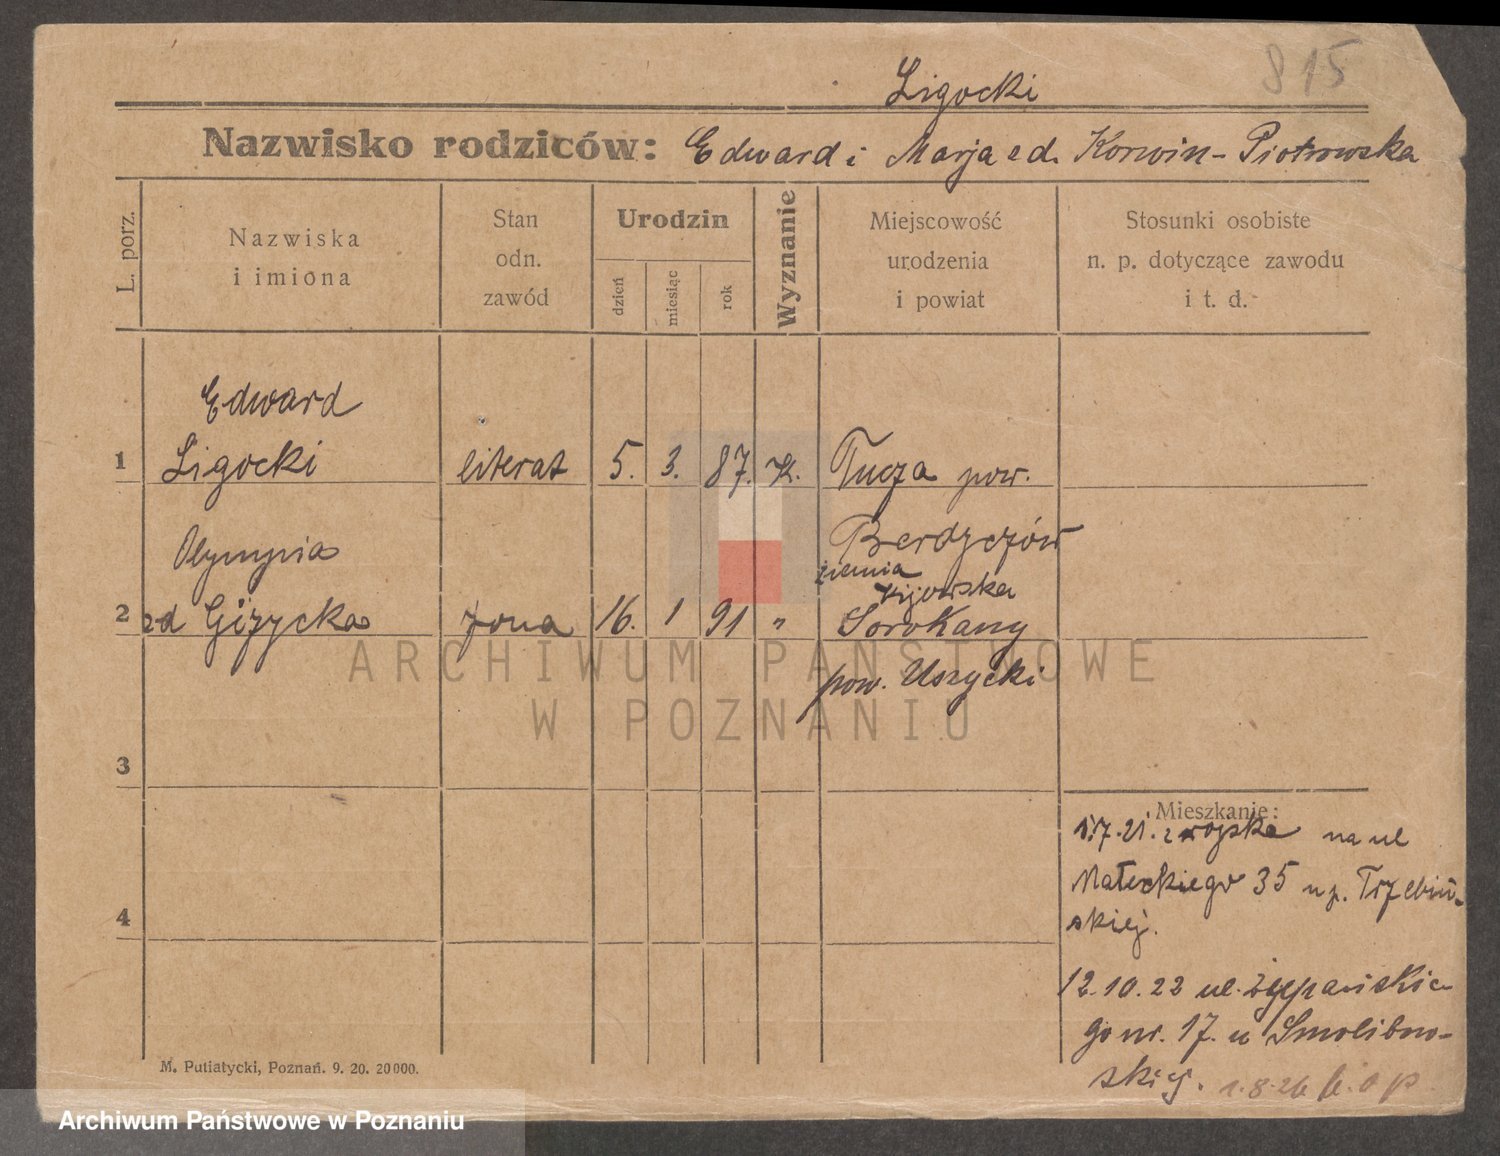 815
Ligocki
Nazwisko rodziców: Edward i Marja zd. Korwin-Piotrowska
L. porz.
Nazwiska
i imiona
Stan
odn.
zawód
Urodzin
dzień
miesiąc
rok
Wyznanie
Miejscowość
urodzenia
i powiat
Stosunki osobiste
n. p. dotyczące zawodu
i t. d.
Edward
1 Ligocki literat 5. 3. 87. K. Tucza pow.
Berdyczów
Olympia ziemia
kijowska
2 zd Giżycka żona 16. 1 91 " Sorokany
pow. Uszycki
3
Mieszkanie:
1.7.21. z wojska na ul
Małeckiego 35 u p. Trzebiń-
skiej.
4
12.10.22 ul.
go nr. 17. u Smolibow-
skiej. 1.8.26
M. Putiatycki, Poznań. 9. 20. 20000.
ARCHIWUM PAŃSTWOWE
W POZNANIU
Archiwum Państwowe w Poznaniu